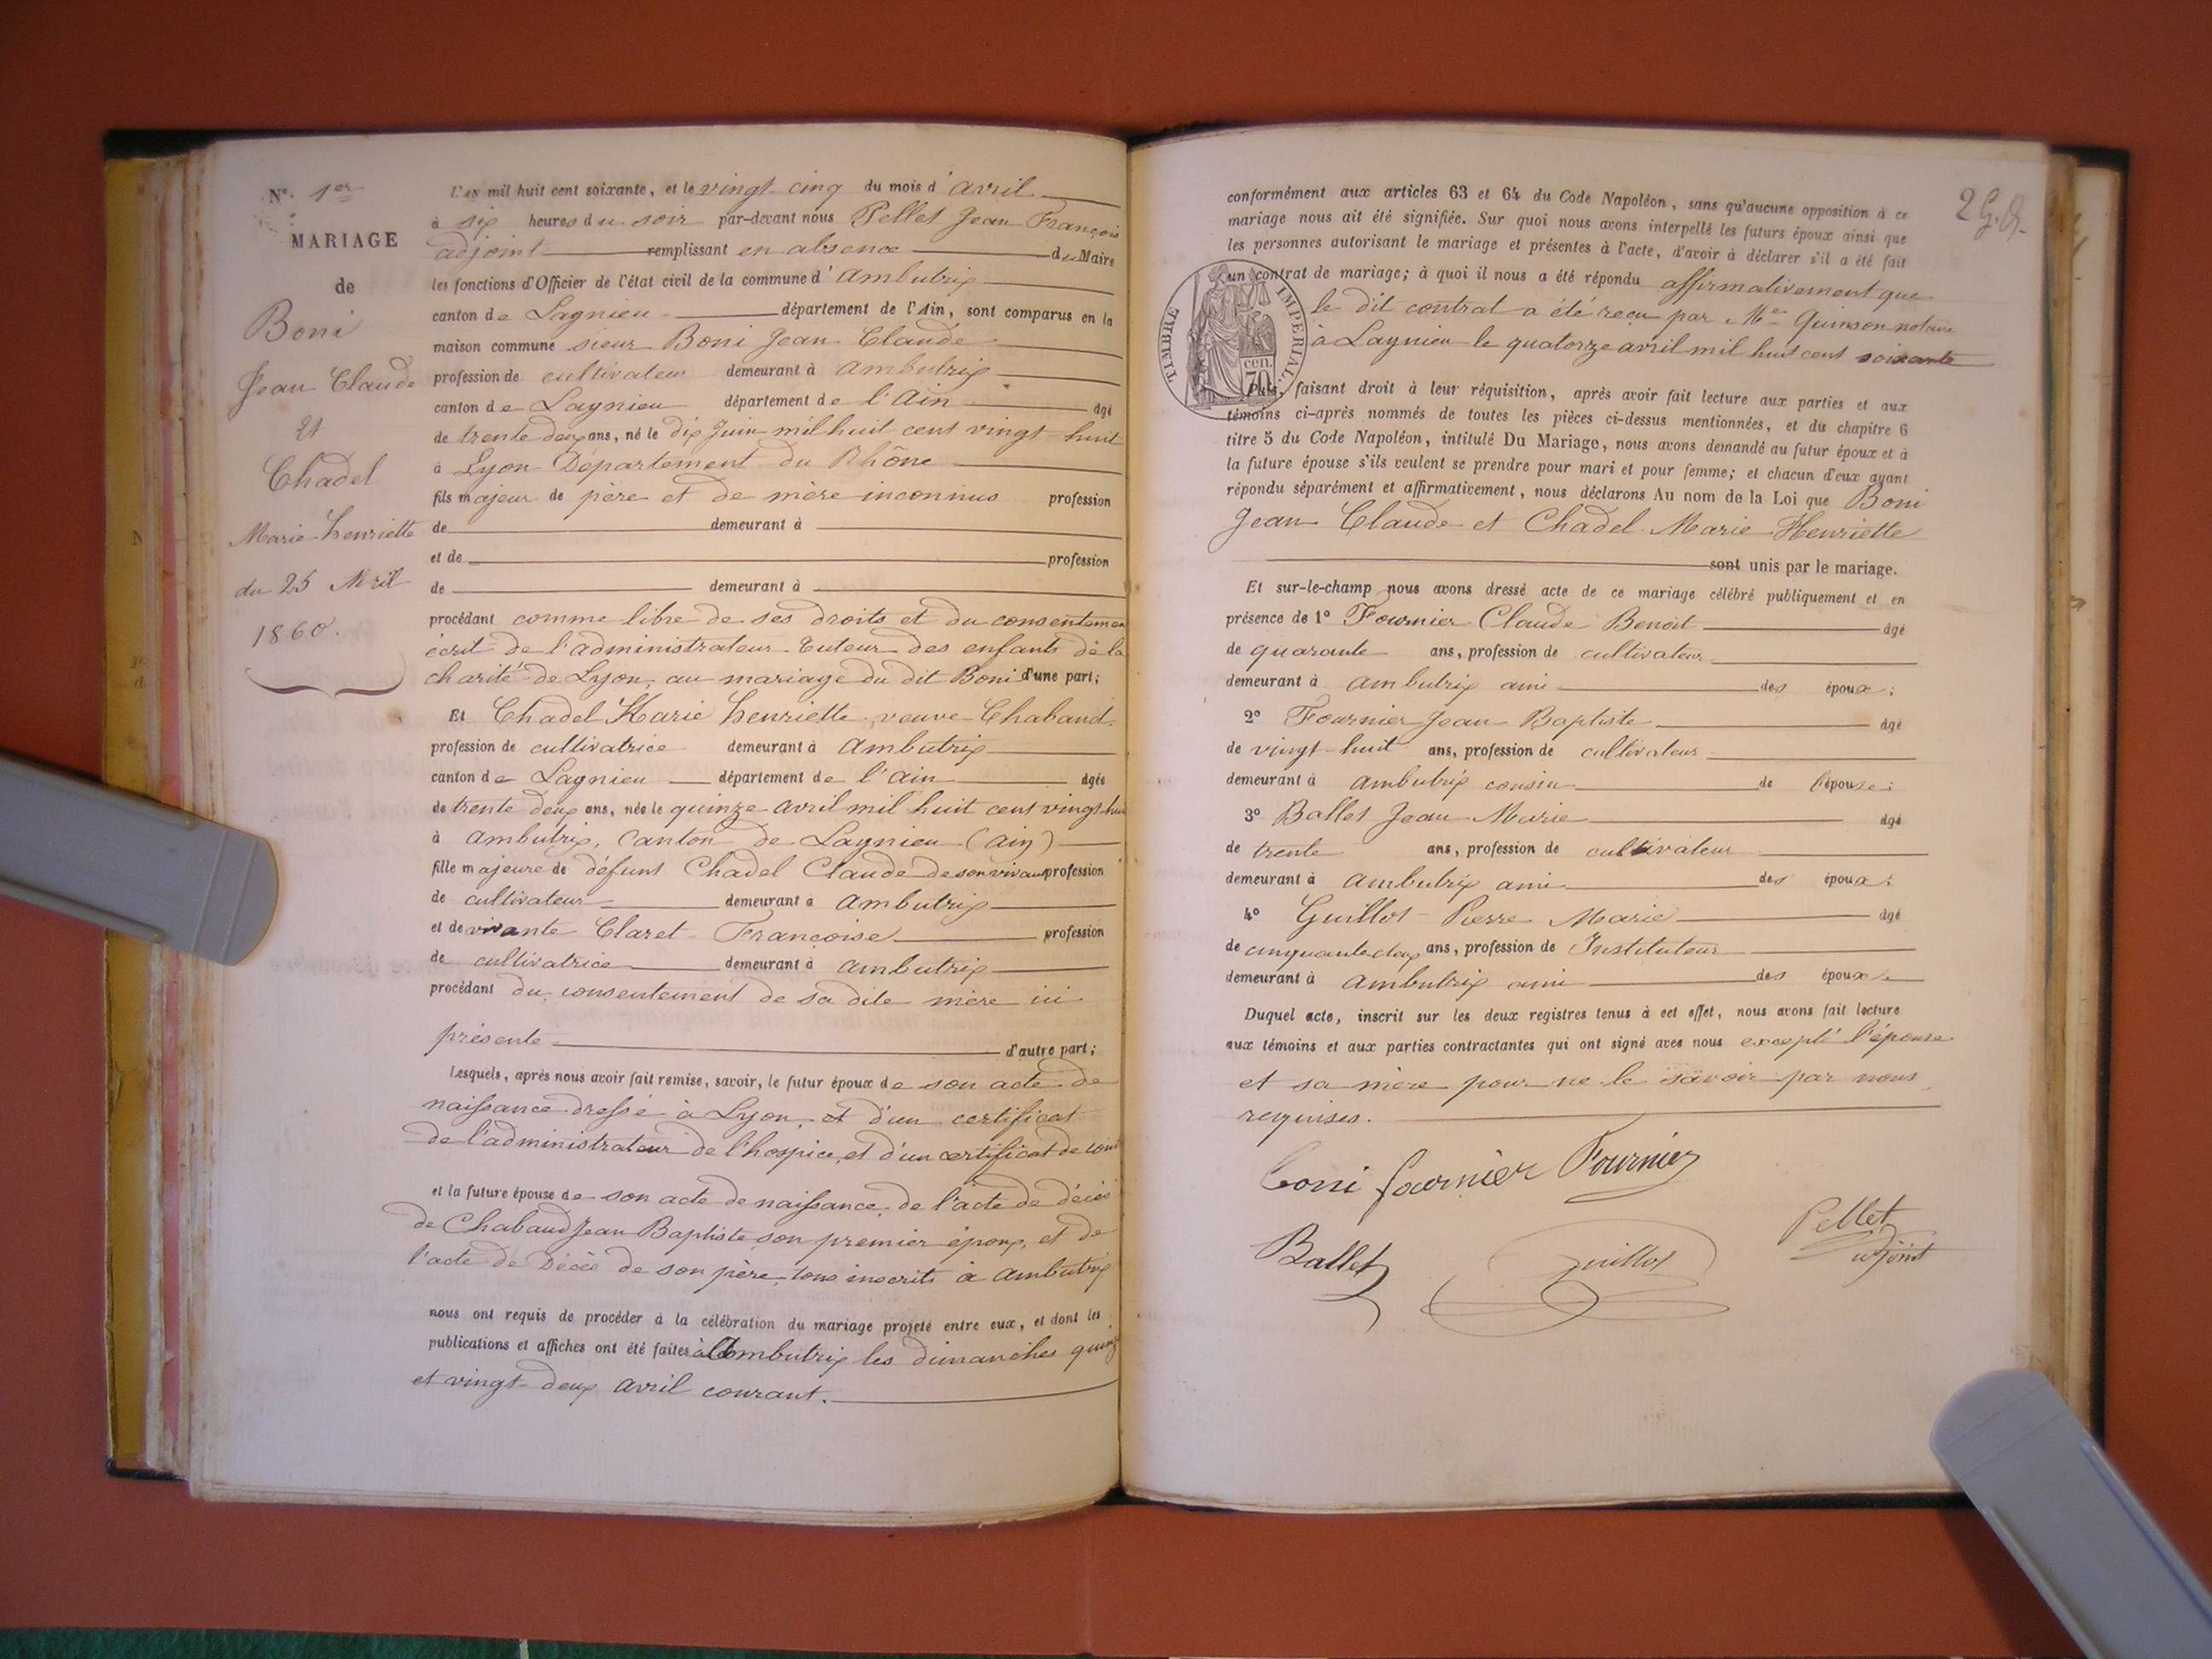 N°. 1er
MARIAGE
de
Boni
Jean Claude
Et
Chadel
Marie henriette
du 25 Avril
1860.
L'AN mil huit cent soixante, et le vingt cinq du mois d'avril
à six heures du soir par-devant nous Pellet Jean François
adjoint remplissant en absence du Maire
les fonctions d'Officier de l'état civil de la commune d'ambutrix
canton de Lagnieu département de l'Ain, sont comparus en la
maison commune sieur Boni Jean Claude
profession de cultivateur demeurant à ambutrix
canton de Lagnieu département de l'ain âgé
de trente deux ans, né le dix Juin mil huit cent vingt huit
à Lyon Département du Rhône
fils majeur de père et de mère inconnus profession
de demeurant à
et de profession
de demeurant à
procédant comme libre de ses droits et du consentemen
écrit de l'administrateur tuteur des enfants de la
charité de Lyon, au mariage du dit Boni d'une part;
Et Chadel Marie henriette veuve Chabaud
profession de cultivatrice demeurant à ambutrix
canton de Lagnieu département de l'ain âgée
de trente deux ans, née le quinze avril mil huit cent vingt huit
à ambutrix, Canton de Lagnieu (ain)
fille majeure de défunt Chadel Claude de son vivant profession
de cultivateur demeurant à ambutrix
et de vivante Claret Françoise profession
de cultivatrice demeurant à ambutrix
procédant du consentement de sa dite mère ici
présente d'autre part;
Lesquels, après nous avoir fait remise, savoir, le futur époux de son acte de
naissance dressé à Lyon, et d'un certificat
de l'administrateur de l'hospice, et d'un certificat de
et la future épouse de son acte de naissance, de l'acte de décès
de Chabaud Jean Baptiste son premier époux, et de
l'acte de Décès de son père, tous inscrits à ambutrix
nous ont requis de procéder à la célébration du mariage projeté entre eux, et dont les
publications et affiches ont été faites à Ambutrix les dimanches quinze
et vingt deux avril courant.
2 G.D.
conformément aux articles 63 et 64 du Code Napoléon, sans qu'aucune opposition à ce
mariage nous ait été signifiée. Sur quoi nous avons interpellé les futurs époux ainsi que
les personnes autorisant le mariage et présentes à l'acte, d'avoir à déclarer s'il a été fait
un contrat de mariage; à quoi il nous a été répondu affirmativement que
le dit contrat a été reçu par Me Quinson notaire
à Lagnieu le quatorze avril mil huit cent soixante
TIMBRE IMPERIAL.
cen.
70
Puis, faisant droit à leur réquisition, après avoir fait lecture aux parties et aux
témoins ci-après nommés de toutes les pièces ci-dessus mentionnées, et du chapitre 6
titre 5 du Code Napoléon, intitulé Du Mariage, nous avons demandé au futur époux et à
la future épouse s'ils veulent se prendre pour mari et pour femme; et chacun d'eux ayant
répondu séparément et affirmativement, nous déclarons Au nom de la Loi que Boni
Jean Claude et Chadel Marie Henriette
sont unis par le mariage.
Et sur-le-champ nous avons dressé acte de ce mariage célébré publiquement et en
présence de 1° Fournier Claude Benoit âgé
de quarante ans, profession de cultivateur
demeurant à ambutrix ami des époux;
2° Fournier Jean Baptiste âgé
de vingt-huit ans, profession de cultivateur
demeurant à ambutrix cousin de l'épouse;
3° Ballet Jean Marie âgé
de trente ans, profession de cultivateur
demeurant à ambutrix ami des époux;
4° Guillot Pierre Marie âgé
de cinquante deux ans, profession de Instituteur
demeurant à ambutrix ami des époux
Duquel acte, inscrit sur les deux registres tenus à cet effet, nous avons fait lecture
aux témoins et aux parties contractantes qui ont signé avec nous excepté l'épouse
et sa mère pour ne le savoir par nous
requises.
boni fournier Fournier
Ballet Guillot Pellet
adjoint